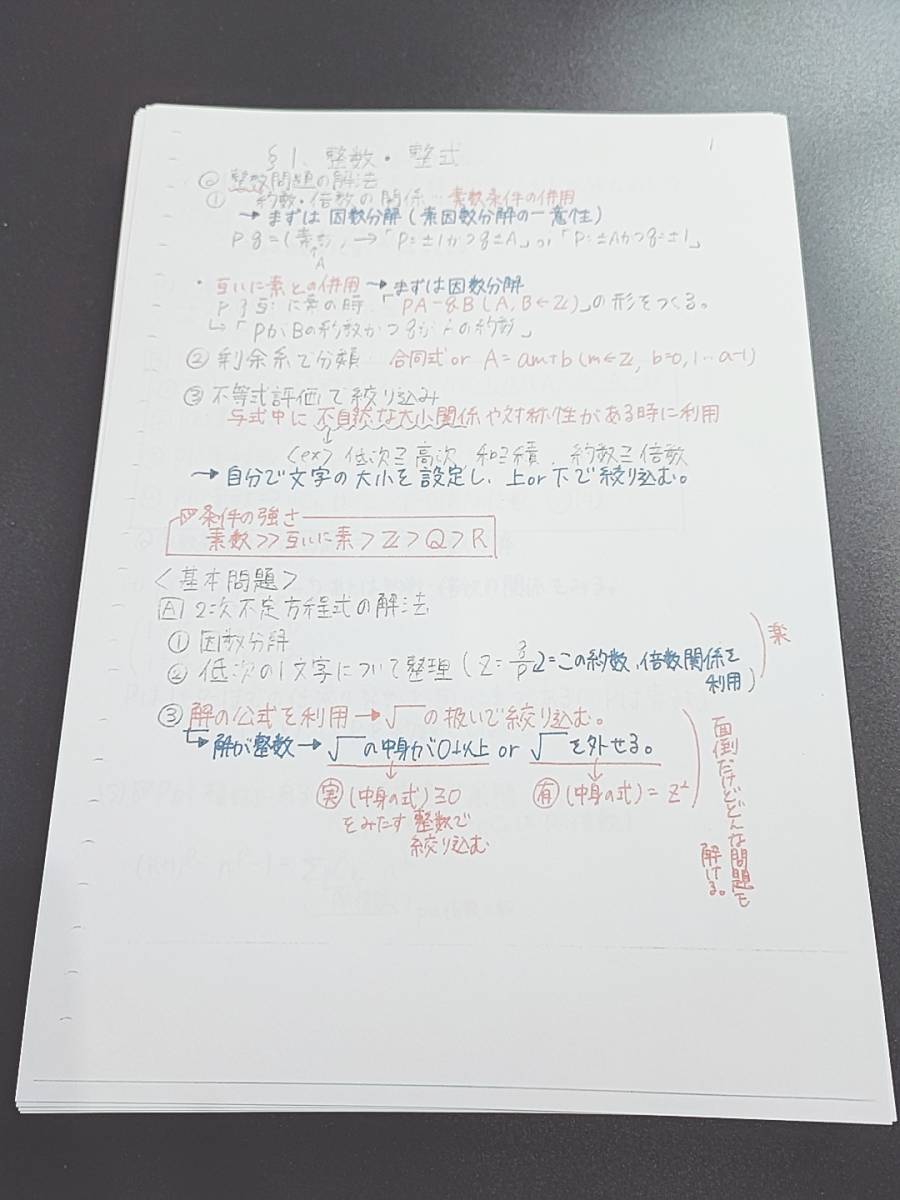 1
§1. 整数・整式
◎ 整数問題の解法
① 約数・倍数の関係 … 素数条件の併用
→ まずは因数分解(素因数分解の一意性)
Pq=(素数) → 「P=±1かつq=±A」or「P=±Aかつq=±1」
A
・互いに素との併用 → まずは因数分解
Pとq互いに素の時、「PA=qB(A,B∈Z)」の形をつくる。
↳「PがBの約数かつqがAの約数」
② 剰余系で分類 … 合同式 or A=am+b(m∈Z, b=0,1…a-1)
③ 不等式評価で絞り込み
与式中に不自然な大小関係や対称性がある時に利用
<ex> 低次≧高次、和≧積、約数≧倍数
→ 自分で文字の大小を設定し、上or下で絞り込む。
条件の強さ
素数≫互いに素>Z>Q>R
<基本問題>
A 2次不定方程式の解法
① 因数分解
② 低次の1文字について整理(Z=q/P Z=この約数、倍数関係を利用)
楽
③ 解の公式を利用→√ の扱いで絞り込む。
↳ 解が整数→√ の中身が0以上 or √ を外せる。
実 (中身の式)≧0
をみたす整数で
絞り込む
有 (中身の式)=Z²
面倒だけどどんな問題も
解ける。